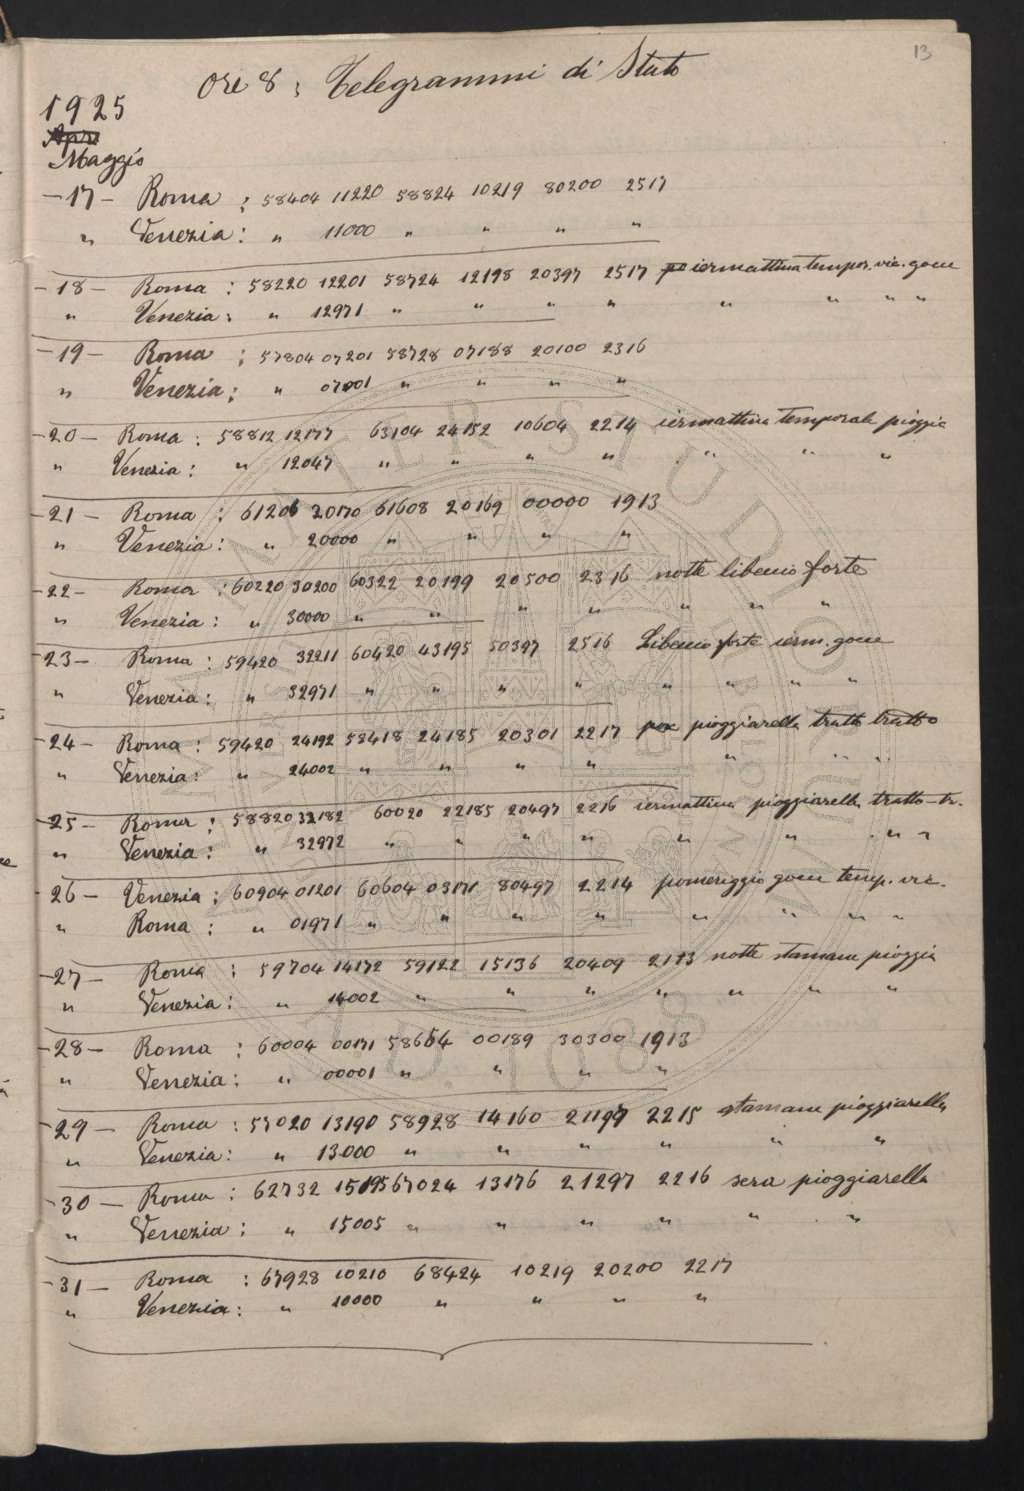 13
Ore 8 : Telegrammi di Stato
1925
Maggio
-17- Roma : 58404 11220 58824 10219 80200 2517
" Venezia : " 11000 " " " "
-18- Roma : 58220 12201 58724 12198 20397 2517 iermattina tempor. vic. gocce
" Venezia : " 12971 " " " " " " " "
-19- Roma : 57804 07201 58728 07188 20100 2316
" Venezia : " 07001 " " " "
-20- Roma : 58812 12177 63104 24152 10604 2214 iermattina temporale pioggia
" Venezia : " 12047 " " " " " " "
-21- Roma : 61206 20170 61608 20169 00000 1913
" Venezia : " 20000 " " " "
-22- Roma : 60220 30200 60322 20199 20500 2316 notte libeccio forte
" Venezia : " 30000 " " " " " " "
-23- Roma : 59420 32211 60420 43195 50397 2516 Libeccio forte ierm. gocce
" Venezia : " 32971 " " " " " " " "
-24- Roma : 59420 24192 58418 24185 20301 2217 pioggiarella tratto tratto
" Venezia : " 24002 " " " " " " "
-25- Roma : 58820 32182 60020 22185 20497 2216 iermattina pioggiarella tratto-tr.
" Venezia : " 32972 " " " " " " " "
-26- Venezia : 60904 01201 60604 03171 80497 2214 pomeriggio gocce temp. vic.
" Roma : " 01971 " " " " " " " "
-27- Roma : 59704 14172 59122 15136 20409 2113 notte stamane pioggia
" Venezia : " 14002 " " " " " " "
-28- Roma : 60004 00171 58664 00189 30300 1913
" Venezia : " 00001 " " " "
-29- Roma : 57020 13190 58928 14160 21197 2215 stamane pioggiarella
" Venezia : " 13000 " " " " " "
-30- Roma : 62732 15195 67024 13176 21297 2216 sera pioggiarella
" Venezia : " 15005 " " " " " "
-31- Roma : 67928 10210 68424 10219 20200 2217
" Venezia : " 10000 " " " "